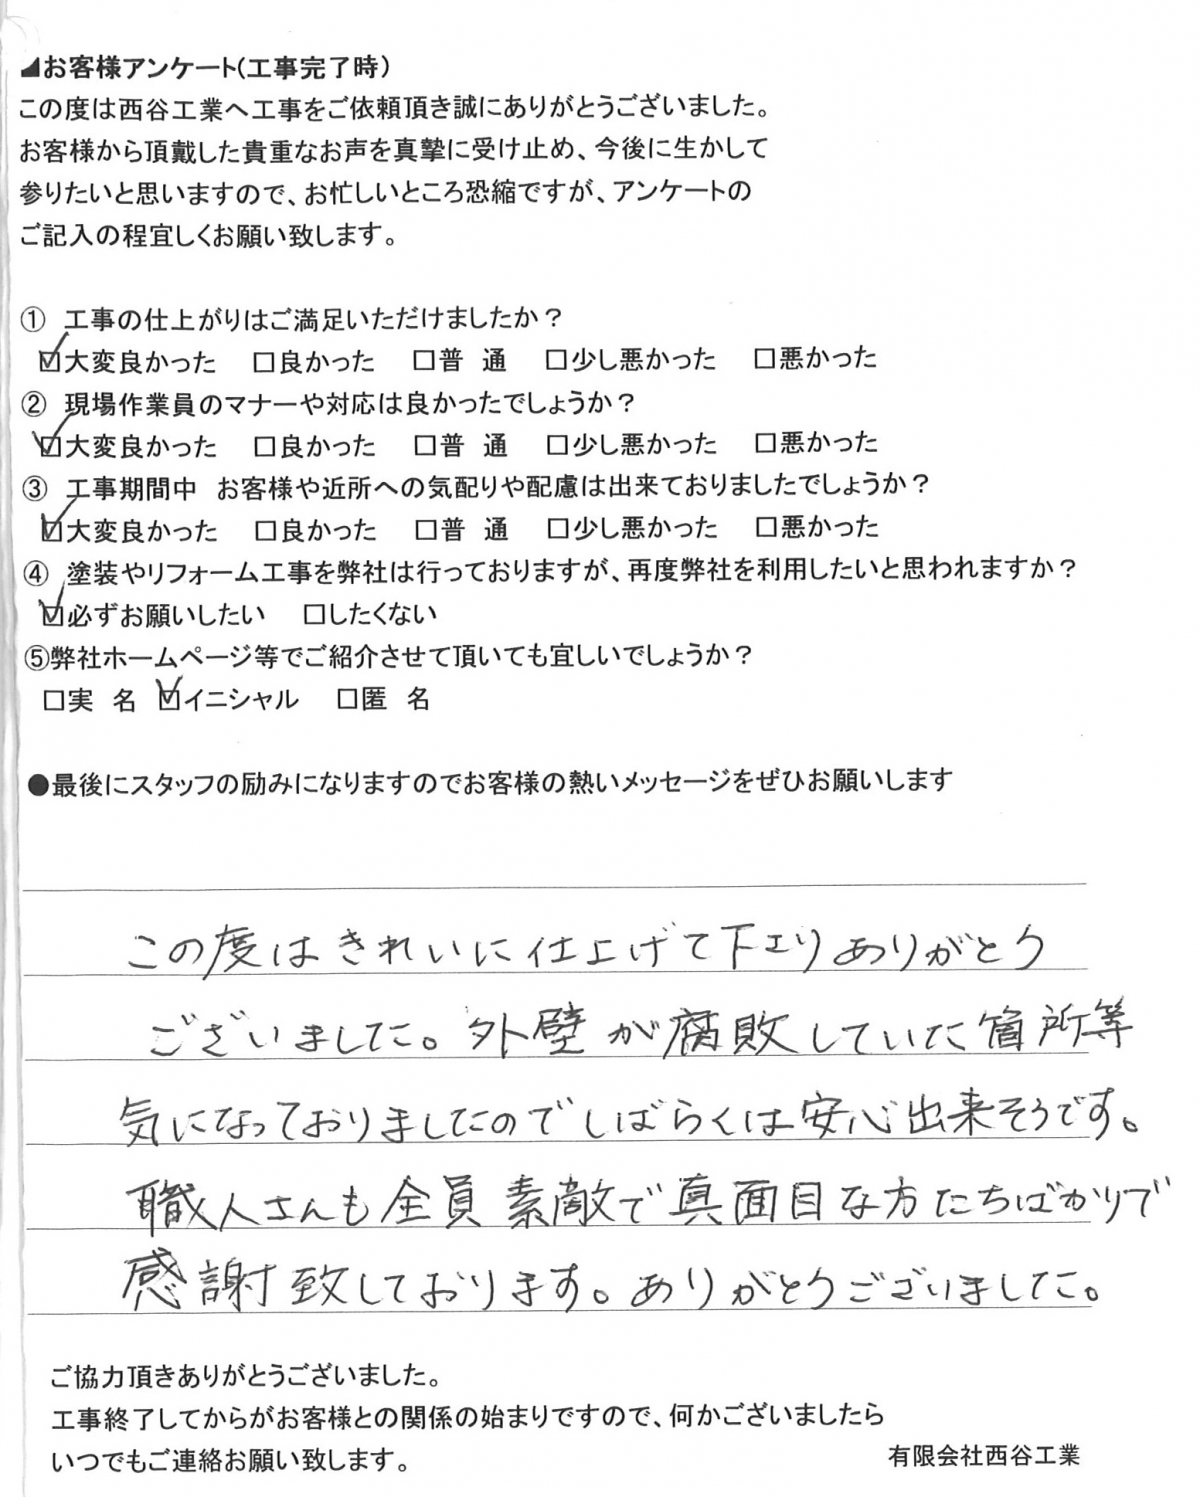 ◢お客様アンケート(工事完了時)
この度は西谷工業へ工事をご依頼頂き誠にありがとうございました。
お客様から頂戴した貴重なお声を真摯に受け止め、今後に生かして
参りたいと思いますので、お忙しいところ恐縮ですが、アンケートの
ご記入の程宜しくお願い致します。
① 工事の仕上がりはご満足いただけましたか？
☑大変良かった □良かった □普 通 □少し悪かった □悪かった
② 現場作業員のマナーや対応は良かったでしょうか？
☑大変良かった □良かった □普 通 □少し悪かった □悪かった
③ 工事期間中 お客様や近所への気配りや配慮は出来ておりましたでしょうか？
☑大変良かった □良かった □普 通 □少し悪かった □悪かった
④ 塗装やリフォーム工事を弊社は行っておりますが、再度弊社を利用したいと思われますか？
☑必ずお願いしたい □したくない
⑤弊社ホームページ等でご紹介させて頂いても宜しいでしょうか？
□実 名 ☑イニシャル □匿 名
●最後にスタッフの励みになりますのでお客様の熱いメッセージをぜひお願いします
この度はきれいに仕上げて下さりありがとう
ございました。外壁が腐敗していた箇所等
気になっておりましたのでしばらくは安心出来そうです。
職人さんも全員素敵で真面目な方たちばかりで
感謝致しております。ありがとうございました。
ご協力頂きありがとうございました。
工事終了してからがお客様との関係の始まりですので、何かございましたら
いつでもご連絡お願い致します。
有限会社西谷工業